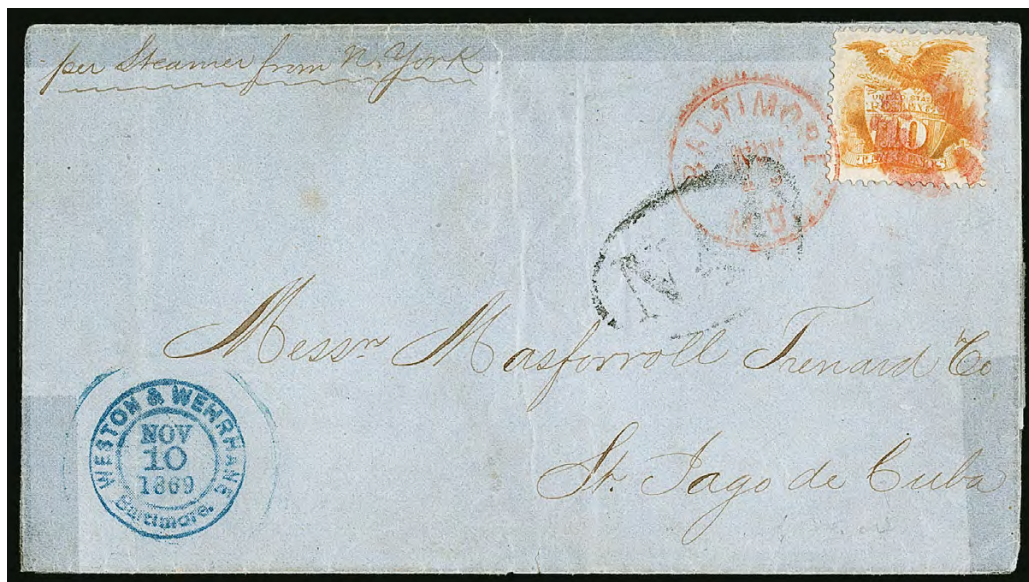 per Steamer from N. York
BALTIMORE
MD
10
NA
Messrs Masforroll Trenard Co
St. Jago de Cuba
WESTON & WEHRHANE
NOV
10
1869
Baltimore.